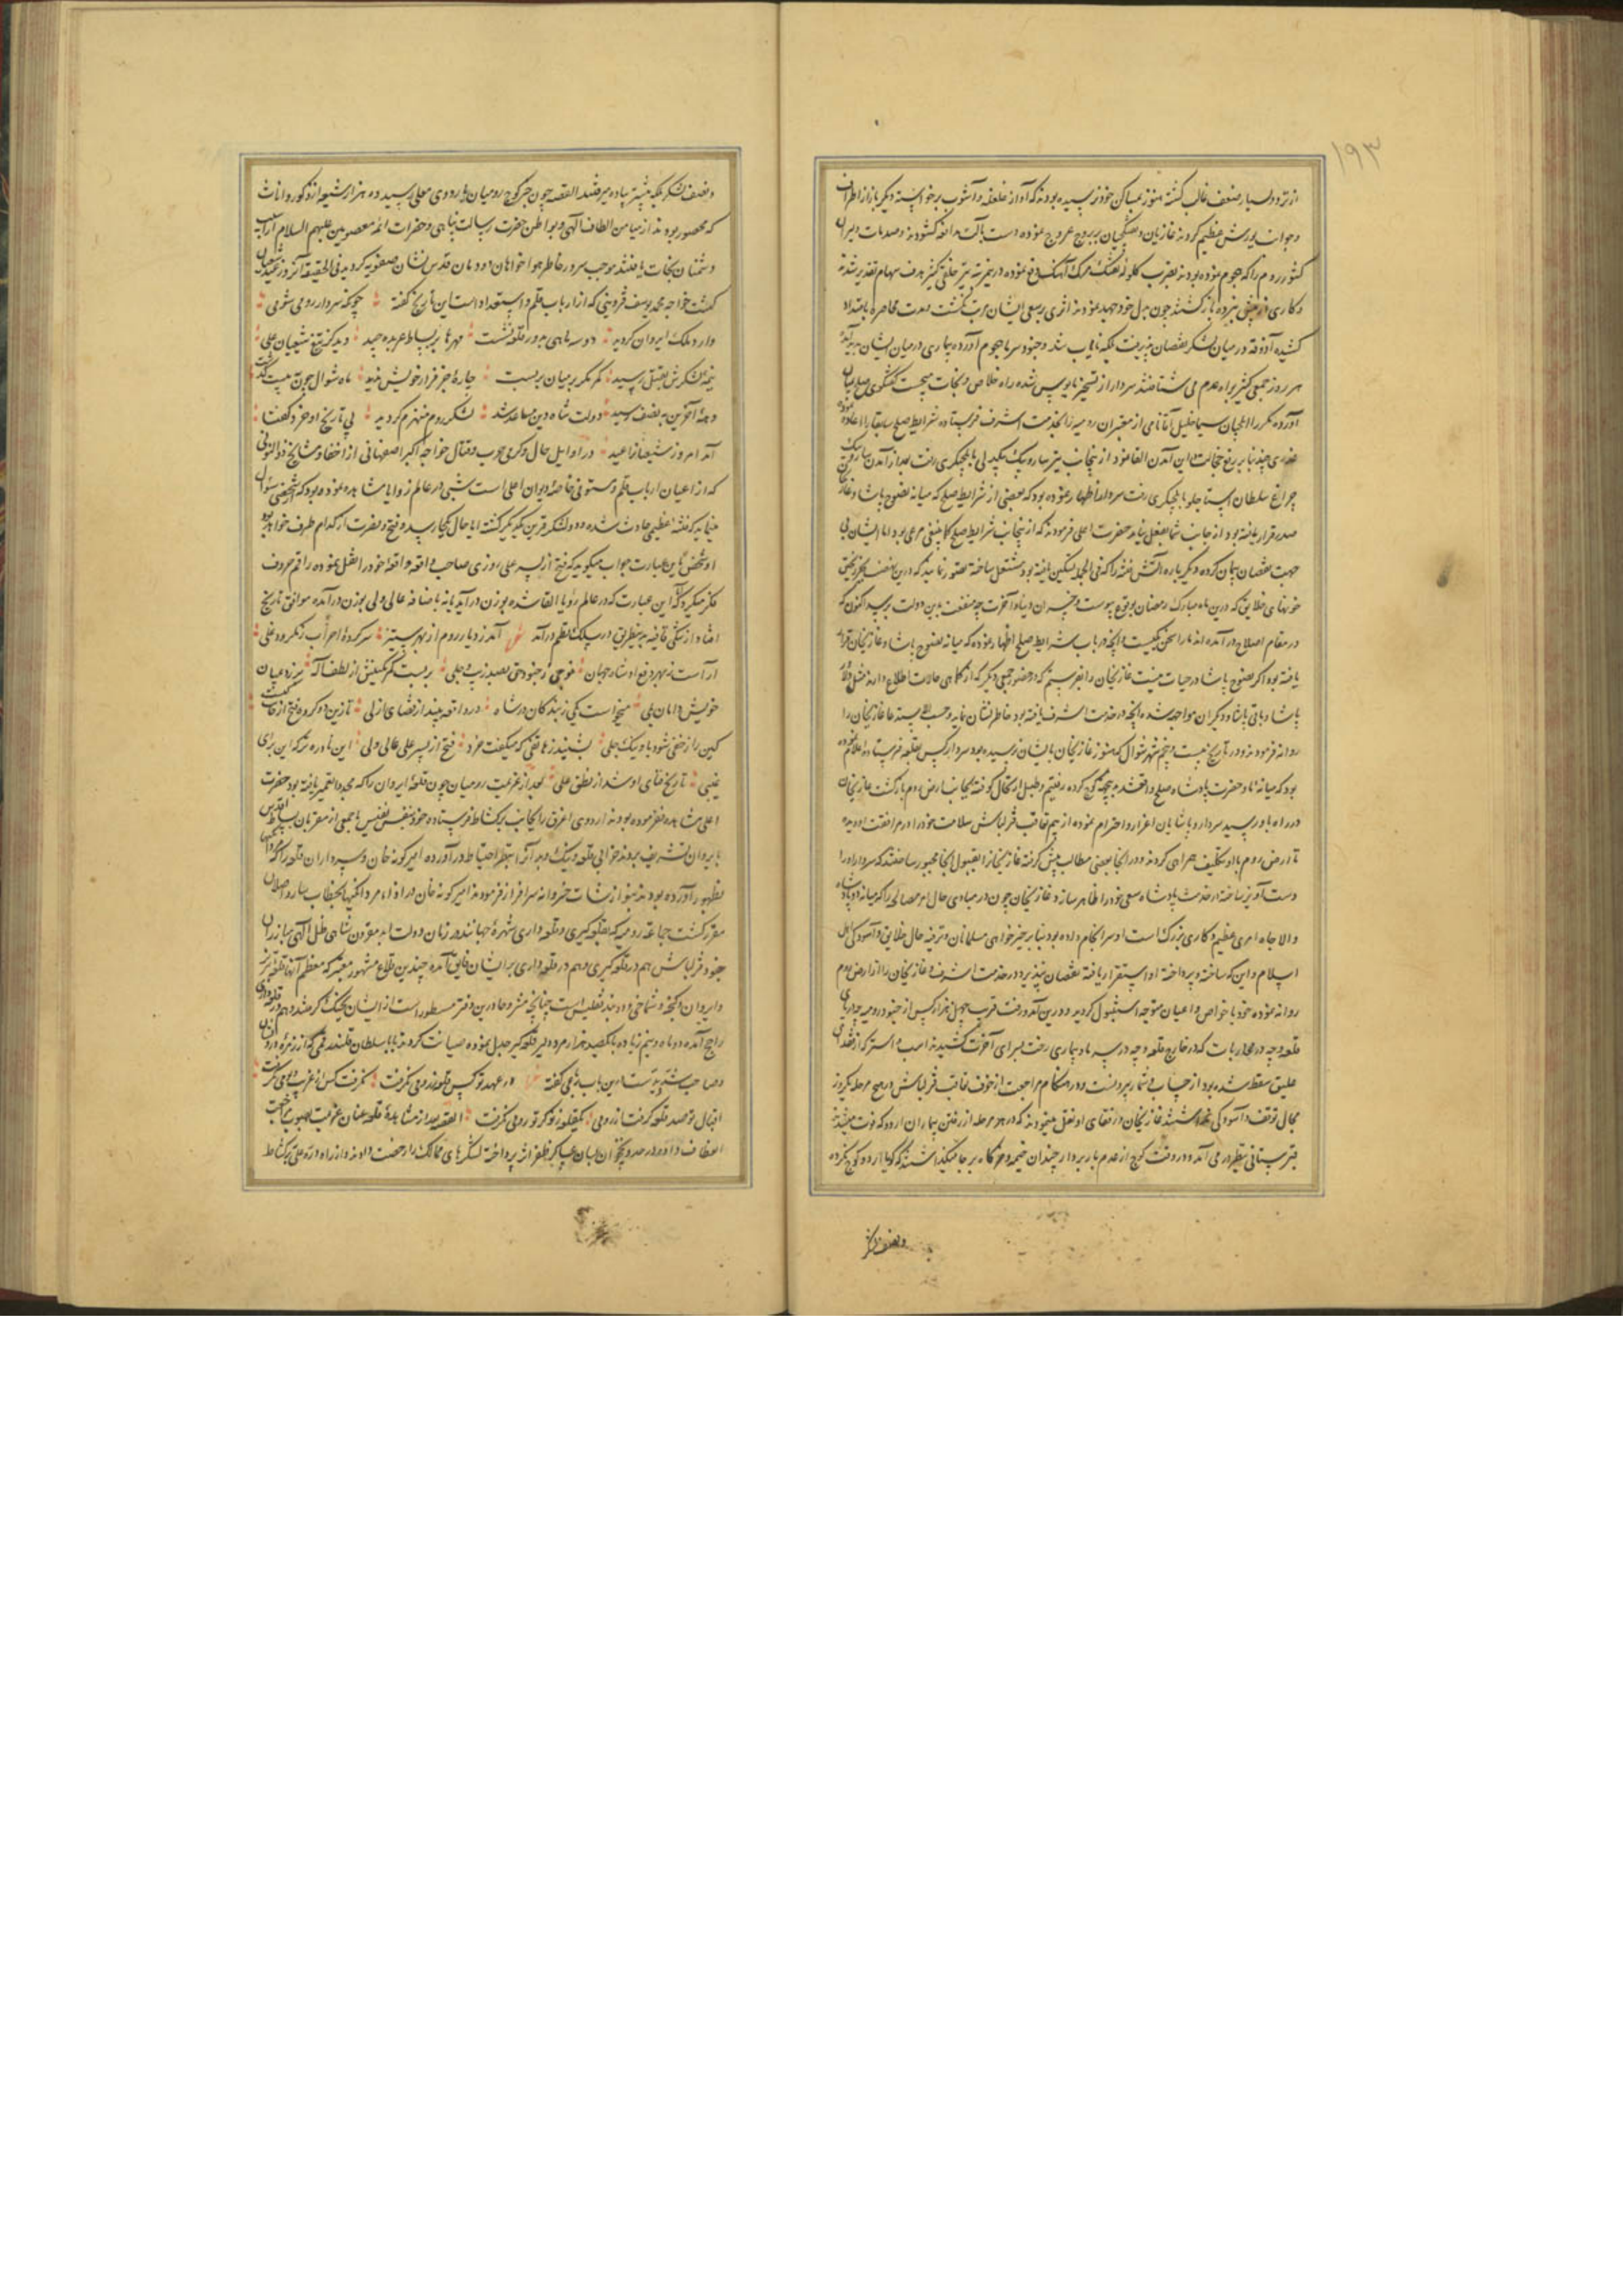 ۱۹۳
از تردد بسیار ضعف غالب گشته هنوز بمساکن خود نرسیده بودند که آواز غلغله و آشوب برخواسته دیگر باره از اطراف
و جوانب یورش عظیم کردند غازیان و تفنگچیان ببروج عروج نموده دست بآلت مدافعه گشودند و صدمات دلیران
کشور روم را که هجوم نموده بودند بضرب گلوله تفنگ مرگ آهنگ دفع نموده درین مرتبه نیز خلقی کثیر هدف سهام تقدیر شدند
و کاری از پیش نبرده بازگشتند چون چهل خود جهد نمودند اثری بر سعی ایشان مرتب نگشت مدت محاصره بامتداد
کشیده آذوقه در میان لشکر نقصان پذیرفت بلکه نایاب شد و جنود سرما هجوم آورده بیماری در میان ایشان پدید آمده
هر روز جمعی کثیر براه عدم می شتافتند سردار از تسخیر مایوس شده راه خلاص و نجات میجست گفتگوی صلح بمیان
آورده مکرر ایلچیان سیما خلیل آقا نامی از معتبران رومیه را بخدمت اشرف فرستاده شرایط صلح سابق را اعاده نموده
عذری چند بنابر رفع خجالت این آمدن القا نمود از ینجانب نیز ساروبیک بیکدلی بایلچیگری رفت بعد از آمدن ساروبیک
چراغ سلطان استاجلو بایلچیگری رفت سردار اظهار نموده بود که بعضی از شرایط صلح که میانه نصوح پاشا و قاضیخان
صدر قرار یافته بود از جانب شما بفعل نیامد حضرت اعلی فرمودند که از ینجانب شرایط صلح کما ینبغی مرعی بود اما ایشان بی
جهت نقصان پیمان کرده دیگر باره آتش فتنه را که فی الجمله تسکین یافته بود مشتعل ساختند تصور نمایند که درین
خونهای خلایق که درین ماه مبارک رمضان بوقوع پیوست و خسران دنیا و آخرت چه منفعت بدین دولت رسید اکنون که
در مقام اصلاح درآمده اند ما را سخن یکیست و آنچه در باب شرایط صلح اظهار نموده که میانه نصوح پاشا و قاضیخان قرار
یافته بود اگر نصوح پاشا در حیات نیست قاضیخان را بفرستیم که در حضور جمعی دیگر که از کماهی حالات اطلاع دارند مثل
پاشا و باقی پاشا و دیگران مواجه شده آنچه در خدمت اشرف یافته بود خاطرنشان نماید و حسب الاستدعا قاضیخان را
روانه فرمودند و در تاریخ بیست و پنجم شهر شوال که هنوز قاضیخان بایشان نرسیده بود سردار کس بقلعه فرستاده اعلام نموده
بود که میانه ما و حضرت پادشاه صلح واقعشد کوچ کرده رفتیم و طبل ارتحال کوفته بجانب ارض روم بازگشت قاضیخان
در راه باو رسید سردار و پاشایان اعزاز و احترام نموده از بیم تعاقب قزلباش سلامت خود را در مرافقت او دیده
تا ارض روم باو تکلیف همراهی کردند و در آنجا بعضی مطالب پیش گرفته قاضیخانرا بقبول آنجا مجبور ساختند که سردار او را
دست آویز ساخته در خدمت پادشاه سعی خود را ظاهر سازد و قاضیخان چون در مبادی حال امر مصالحه را که میانه دو پادشاه
والا جاه امری عظیم و کاری بزرگ است او سرانجام داده بود بنابر خیرخواهی مسلمانان و ترفیه حال خلایق و آسودگی اهل
اسلام و این که ساخته و پرداخته او استقرار یافته نقصان نپذیرد در خدمت اشرف و قاضیخان را از ارض روم
روانه نموده خود با خواص و اعیان متوجه استنبول گردید و درین آمد و رفت قریب چهل هزار کس از جنود رومیه در پای
قلعه و چه در محاربات که در خارج قلعه و چه در سرما و بیماری رخت بسرای آخرت کشیدند اسب و استر که از فقدان
علیق سقط شده بود از حساب و شمار بیرونست و در هنگام مراجعت از خوف تعاقب قزلباش در هیچ مرحله یکروز
مجال توقف و آسودگی نداشتند قاضیخان و رفقای او نقل مینمودند که در هر مرحله از رفتن بیماران اردو که فوت میشدند
قبرستانی بنظر در می آمد و در وقت کوچ از عدم باربردار چندان خیمه و خرگاه بر جا میگذاشتند که گویا اردو کوچ نکرده
و نصف لشکر
و نصف لشکر بلکه بیشتر پیاده میرفتند القصه چون خبر کوچ رومیان باردوی معلی رسید ده هزار شیعه از ذکور و اناث
که محصور بودند از میامن الطاف آلهی و بواطن حضرت رسالت پناهی و حضرات ائمه معصومین علیهم السلام از آسیب
دشمنان نجات یافتند موجب سرور خاطر هواخواهان دودمان قدس نشان صفویه گردید فی الحقیقه آنروز عید شیعیان
گشت خواجه محمد یوسف قزوینی که از ارباب قلم و استعداد است این تاریخ گفته چونکه سردار رومی شومی
وارد ملک ایروان گردید دو سه ماهی بدور قلعه نشست مهرها بر بساط عربده چید دید کز تیغ شیعیان علی
نیمه لشکرش بقتل رسید کمر مکر بر میان بربست چارهٔ جز فرار خویش ندید ماه شوال چون به بیست گذشت
وعدهٔ آخرین به نصف رسید دولت شاه دین مساعد شد لشکر روم منهزم گردید پی تاریخ او خرد گفتا
آمد امروز شیعیانرا عید در اوایل حال و گرمی حرب و قتال خواجه اکبر اصفهانی از احفاد مشایخ ذوالنونی
که از اعیان ارباب قلم و مستوفی خاصه دیوان اعلی است شبی در عالم رؤیا مشاهده نموده بود که شخصی سؤال
مینماید که فتنه عظیمی حادث شده و دو لشکر قرین یکدیگر گشته آیا حال بکجا رسید و فتح و نصرت از کدام طرف خواهد بود
او شخص باین عبارت جواب میگوید که فتح از پسر علی روزی صاحب واقعه واقعهٔ خود را نقل نموده راقم حروف
فکر میکرد که این عبارت که در عالم رؤیا القا شده بوزن درآید یا نه باضافه عالی ولی بوزن درآمده موافق تاریخ
افتاد از تنگی قافیه بدینطریق در سلک نظم درآمد آمد ز دیار روم از بهر ستیز سرکردهٔ احزاب ز مکر و دغلی
آراست ز بهر دفع او شاه جهان فوجی ز جنود حق بصد زیب و جلی بربست کمر بکینش از لطف آله بزدود بیان
خویش دامان یلی میخواست یکی ز بندگان در شاه در واقعه بیند از قضای ازلی تا زین دو گروه فتح از جانب کیست
کین راز خفی شود باو نیک جلی بشنید ز هاتفی که میگفت خرد فتح از پسر علی عالی ولی این نادره تر که این ندای
غیبی تاریخ قضای او شد از لطف علی بعد از عزیمت رومیان چون قلعهٔ ایروان را که مجددا تعمیر یافته بود حضرت
اعلی مشاهده نفرموده بودند اردوی اغرق را بجانب ترکشاط فرستاده خود بنفس نفیس با جمعی از مقربان بساط اقدس
بایروان تشریف بردند حوالی قلعه و بیک و بد آنرا بنظر احتیاط درآورده امیر گونه خان و سرداران قلعه را که مردانگیها
بظهور آورده بودند بنوازشات خسروانه سرافراز فرمودند امیر گونه خان در ازاء مردانگیها بخطاب ساروارسلان
مقرر گشت جماعه رومیه که بقلعه گیری و قلعه داری شهرهٔ جهانند در زمان دولت ابد مقرون شاهی ظل آلهی مبارزان
جنود قزلباش هم در قلعه گیری و هم در قلعه داری بر ایشان فایق آمده چندین قلاع مشهور معتبر که معظم آنها قلعه تبریز
و ایروان و گنجه و شماخی و دربند و تفلیس است چنانچه مشروحا درین دفتر مسطور است از ایشان بجنگ گرفتند و هم در قلعه داری
راجح آمده دو ماه و نیم زیاده با یکصد هزار مرد دلیر قلعه گیر جدل نموده صیانت کردند بابا سلطان قلندر قمی که از زمره درویشان
و صاحب مشربست این رباعی گفته در عهد تو کس قلعه ز رومی نگرفت نگرفت کس از عرب و عجمی نگرفت
اقبال تو صد قلعه گرفت از رومی یک قلعه ز نوکر تو رومی نگرفت القصه بعد از مشاهدهٔ قلعه عنان عزیمت بصوب
انعطاف داده در حدود نخجوان بسان عساکر ظفر اثر پرداخته لشکرهای ممالک را رخصت دادند و از راه دره علی ترکشاط